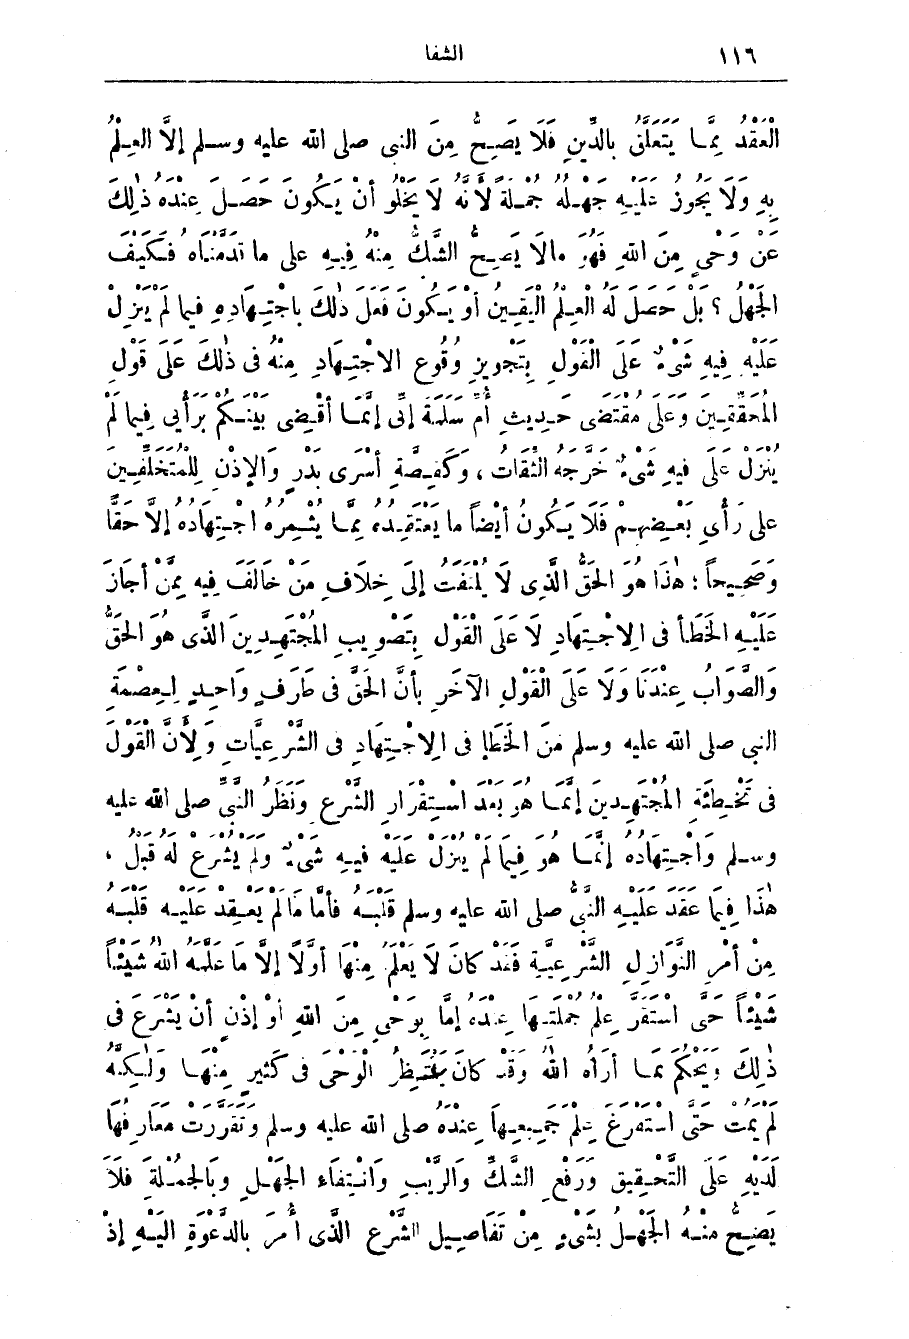 ١١٦ الشفا
الْعَقْدُ مِمَّا يَتَعَلَّقُ بِالدِّينِ فَلَا يَصِحُّ مِنَ النبى صلى الله عليه وسلم إلَّا الْعِلْمُ
بِهِ وَلَا يَجُوزُ عَلَيْهِ جَهْلُهُ جُمْلَةً لأَنَّهُ لَا يَخْلُو أَنْ يَكُونَ حَصَلَ عِنْدَهُ ذٰلِكَ
عَنْ وَحْىٍ مِنَ اللهِ فَهُوَ مالَا يَصِحُّ الشَّكُّ مِنْهُ فِيهِ على ما قدمْنَاه فكَيْفَ
الجَهْلُ ؟ بَلْ حَصَلَ لَهُ الْعِلْمُ الْيَقِينُ أَوْ يَكُونَ فَعَلَ ذٰلكَ باجْتِهَادِهِ فيما لَمْ يَنْزِلْ
عَلَيْهِ فِيهِ شَىْءٌ عَلَى الْقَوْلِ بِتَجْوِيزِ وُقُوعِ الاجْتِهَادِ مِنْهُ فى ذٰلكَ عَلَى قَوْلِ
المُحَقِّقِينَ وَعَلَى مُقْتَضَى حَدِيثِ أُمِّ سَلَمَةَ إنِّى إنَّمَا أَقْضِى بَيْنَكُمْ بِرَأْيِى فِيما لَمْ
يُنْزَلْ عَلَىَّ فيهِ شَىْءٌ خَرَّجَهُ الثِّقَاتُ ، وَكَقِصَّةِ أَسْرَى بَدْرٍ وَالإِذْنِ لِلْمُتَخَلِّفِينَ
على رَأْىِ بَعْضِهِمْ فَلَا يَكُونُ أَيْضاً ما يَعْتَقِدُهُ مِمَّا يُثْمِرُهُ اجْتِهَادُهُ إلَّا حَقًّا
وَصَحِيحاً ؛ هٰذَا هُوَ الحَقُّ الَّذِى لَا يُلْتَفَتُ إلَى خِلَافِ مَنْ خَالَفَ فِيهِ مِمَّنْ أَجَازَ
عَلَيْهِ الخَطَأَ فى الِاجْتِهَادِ لَا عَلَى الْقَوْلِ بِتَصْوِيبِ المُجْتَهِدِينَ الَّذى هُوَ الحَقُّ
وَالصَّوَابُ عِنْدَنَا وَلَا عَلَى الْقَوْلِ الآخَرِ بأَنَّ الحَقَّ فى طَرَفٍ وَاحِدٍ لِعِصْمَةِ
النبى صلى الله عليه وسلم مِنَ الخَطَإِ فى الِاجْتِهَادِ فى الشَّرْعِيَّاتِ وَلِأَنَّ الْقَوْلَ
فى تَخْطِئَةِ المُجْتَهِدِينَ إنَّمَا هُوَ بَعْدَ اسْتِقْرَارِ الشَّرْعِ وَنَظَرُ النَّبِىِّ صلى الله عليه
وسلم وَاجْتِهَادُهُ إنَّمَا هُوَ فِيمَا لَمْ يَنْزِلْ عَلَيْهِ فيهِ شَىْءٌ وَلَمْ يُشْرَعْ لَهُ قَبْلُ ،
هٰذَا فِيمَا عَقَدَ عَلَيْهِ النَّبِىُّ صلى الله عليه وسلم قَلْبَهُ فأَمَّا مَا لَمْ يَعْقِدْ عَلَيْهِ قَلْبَهُ
مِنْ أَمْرِ النَّوَازِلِ الشَّرْعِيَّةِ فَقَدْ كانَ لَا يَعْلَمُ مِنْهَا أَوَّلًا إلَّا مَا عَلَّمَهُ اللهُ شَيْئاً
شَيْئاً حَتَّى اسْتَقَرَّ عِلْمُ جُمْلَتِهَا عِنْدَهُ إمَّا بِوَحْىٍ مِنَ اللهِ أَوْ إِذْنٍ أَنْ يَشْرَعَ فى
ذٰلِكَ وَيَحْكُمَ بمَا أَرَاهُ اللهُ وَقَدْ كانَ يَنْتَظِرُ الْوَحْىَ فى كَثِيرٍ مِنْهَا وَلٰكِنَّهُ
لَمْ يَمُتْ حَتَّى اسْتَفْرَغَ عِلْمَ جَمِيعِهَا عِنْدَهُ صلى الله عليه وسلم وَتَقَرَّرَتْ مَعَارِفُهَا
لَدَيْهِ عَلَى التَّحْقِيقِ وَرَفْعِ الشَّكِّ وَالرَّيْبِ وَانْتِفَاءِ الجَهْلِ وَبِالجُمْلَةِ فَلَا
يَصِحُّ مِنْهُ الجَهْلُ بِشَىْءٍ مِنْ تَفَاصِيلِ الشَّرْعِ الَّذى أُمِرَ بالدَّعْوَةِ الَيْهِ إذْ